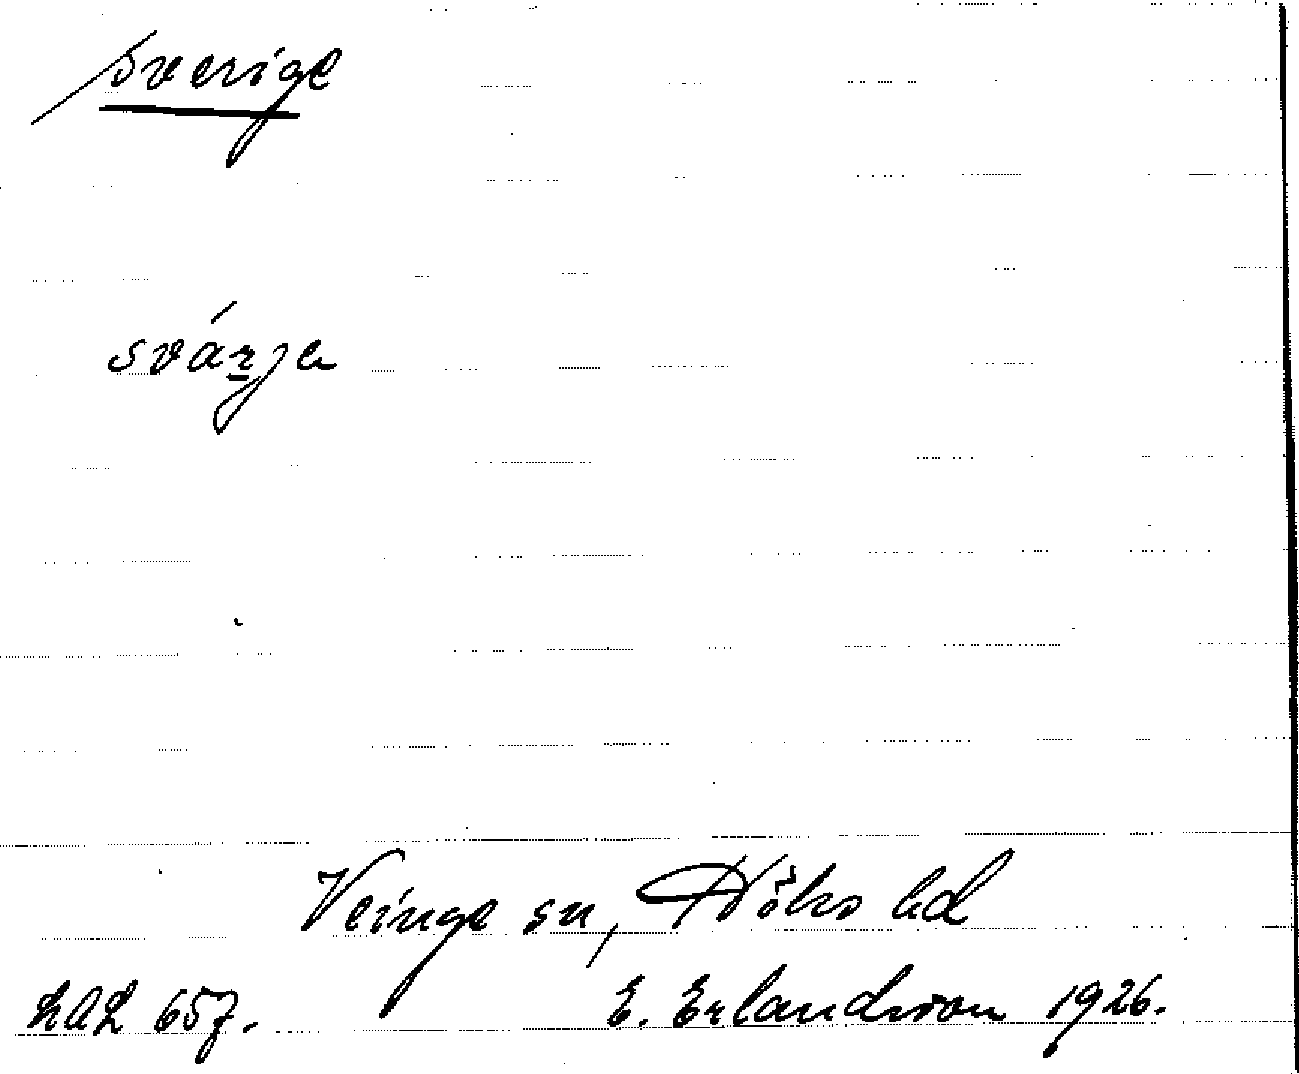 Sverige
svárje
Veinge sn, Höks hd
LAL 657. E. Erlandsson 1926.